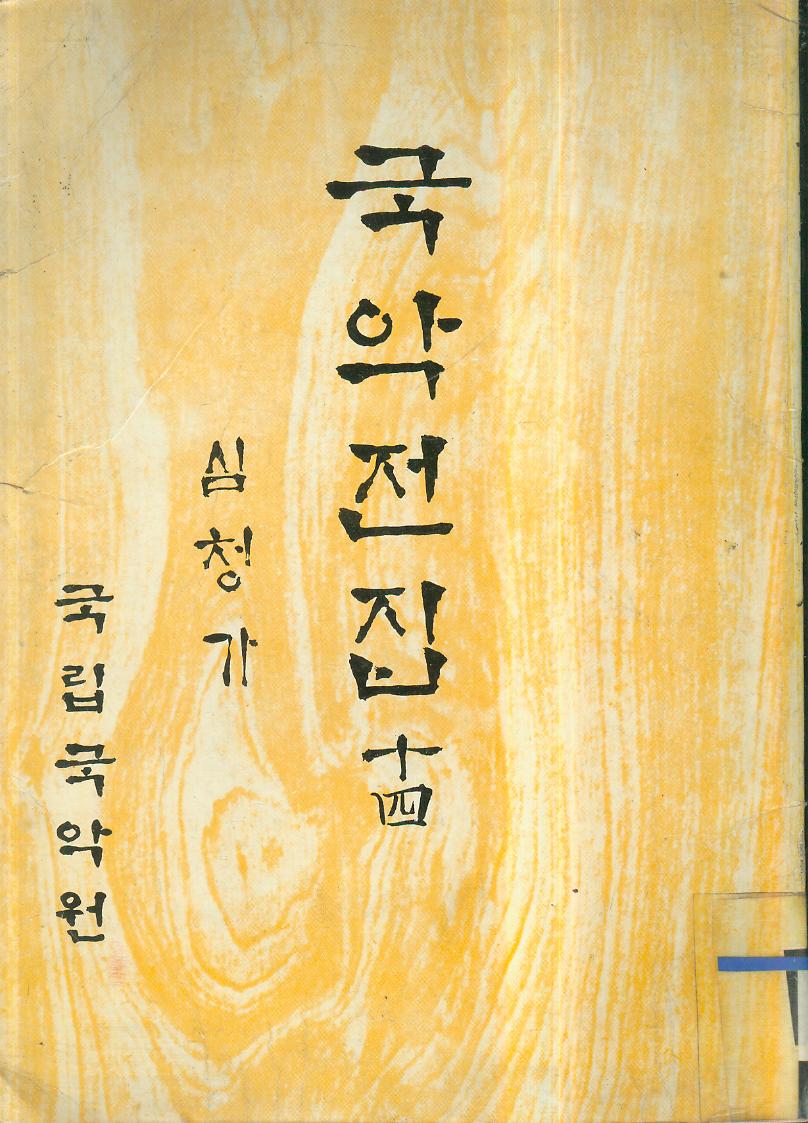 국악전집 十四
심청가
국립국악원